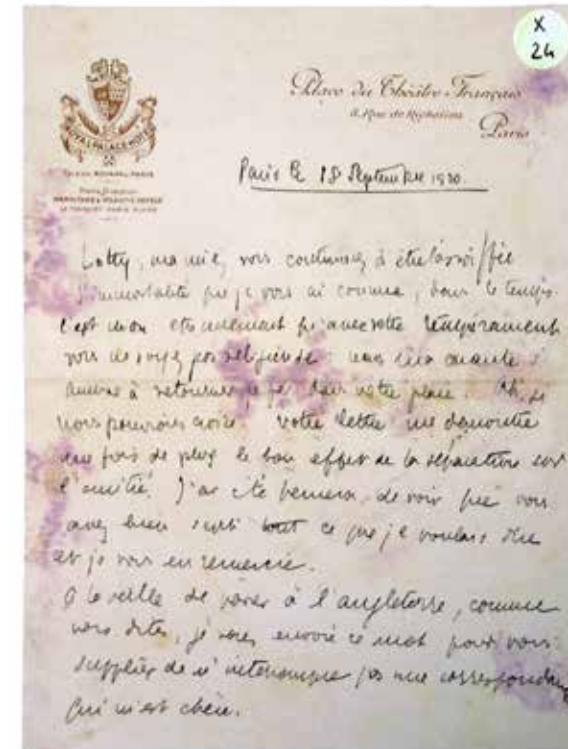 X
24
ROYAL PALACE HOTEL
Place du Théâtre Français
8, Rue de Richelieu
Paris
Paris le 18 Septembre 1920.
Lotty, ma mie, vous continuez à être
d'immortalité que je vous ai connue, dans le temps.
C'est mon étonnement qu'avec votre tempérament
vous ne soyez pas religieuse
à retourner dans votre
nous pouvions croire. votre lettre me démontre
une fois de plus le bon effet de la séparation sur
l'amitié. J'ai été heureux de voir que vous
avez bien senti tout ce que je voulais dire
et je vous en remercie.
A la veille de à l'angleterre, comme
vous dites, je vous envoie ce mot pour vous
supplier de n'interrompre pas une correspondance
qui m'est chère.